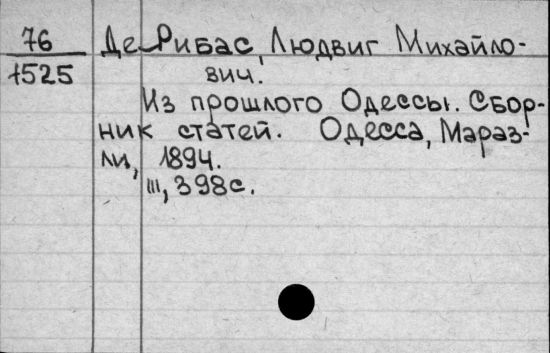 76 Де-Рибас, Людвиг Михайло-
1525 вич.
Из прошлого Одессы. Сбор-
ник статей. Одесса, Мараз-
ли, 1894.
III, 398с.